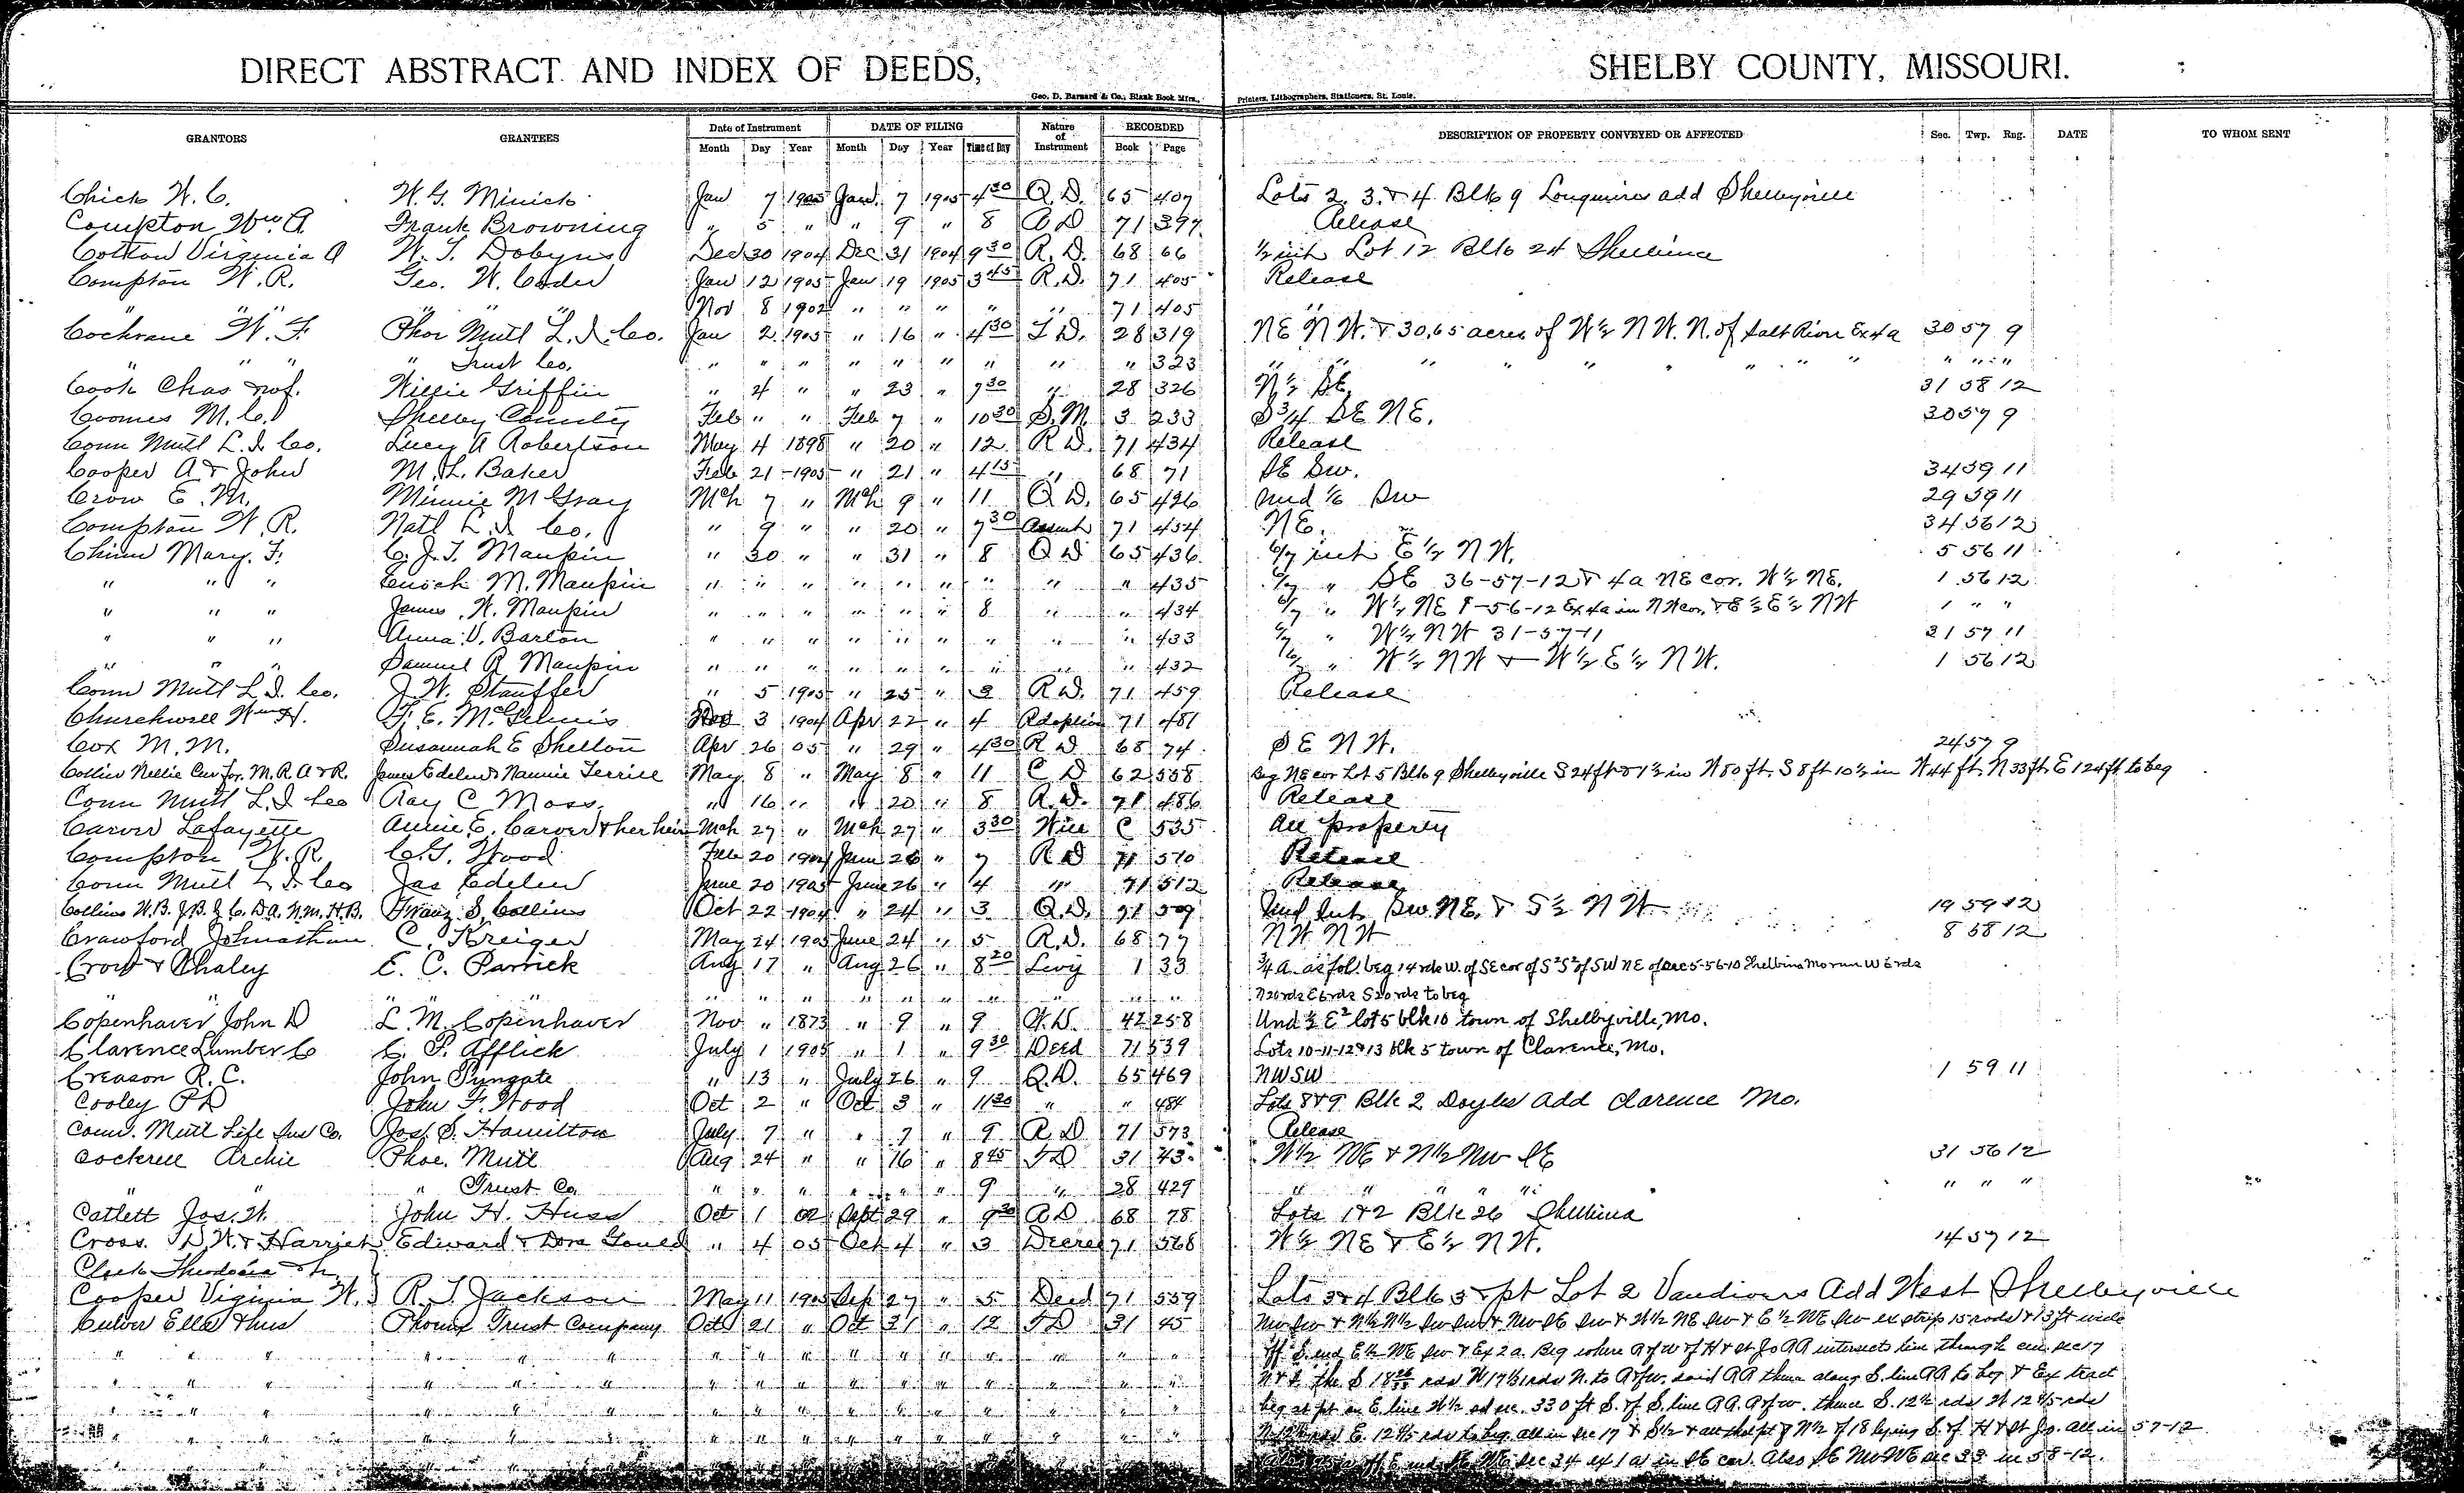 DIRECT ABSTRACT AND INDEX OF DEEDS, SHELBY COUNTY, MISSOURI.
Geo. D. Barnard & Co., Blank Book Mfrs., Printers, Lithographers, Stationers, St. Louis.
GRANTORS GRANTEES Date of Instrument DATE OF FILING Nature of Instrument RECORDED DESCRIPTION OF PROPERTY CONVEYED OR AFFECTED Sec. Twp. Rng. DATE TO WHOM SENT
Month Day Year Month Day Year Time of Day Book Page
Chick W. C. W. G. Minick Jan 7 1905 Jan. 7 1905 4 30 Q. D. 65 407 Lots 2, 3 & 4 Blk 9 Longmires add Shelbyville
Compton Wm A. Frank Browning " 5 " " 9 " 8 71 397 Release
Cotton Virginia A W. T. Dobyns Dec 30 1904 Dec 31 1904 9 30 R. D. 68 66 1/2 int Lot 12 Blk 24 Shelbina
Compton W. R. Geo. W. Jan 12 1905 Jan 19 1905 3 45 R. D. 71 405 Release
" " " " " " Nov 8 1902 " " " " " 71 405 "
Cochrane W. F. Phoe Mutl L. I. Co. Jan 2 1905 " 16 " 4 30 T D. 28 319 NE NW. & 30.65 acres of W 1/2 NW. N. of Salt River Ex 4a 30 57 9
" " " " Trust Co. " " " " " " " " " 323 " " " " " " " " " "
Cook Chas Willie Griffin " 4 " " 23 " 7 30 " 28 326 N 1/2 SE. 31 58 12
Coomes M. C. Shelby County Feb " " Feb 7 " 10 30 S. M. 3 233 S 3/4 SE NE. 30 57 9
Conn Mutl L. I. Co. Lucy A Robertson May 4 1898 " 20 " 12 R D. 71 434 Release
Cooper A & John M. L. Baker Feb 21 1905 " 21 " 4 15 " 68 71 SE SW. 34 59 11
Crow E. M. Minnie M Gray Mch 7 " Mch 9 " 11 Q D. 65 426 und 1/6 SW 29 59 11
Compton W. R. Natl L. I. Co. " 9 " " 20 " 7 30 71 454 NE. 34 56 12
Chinn Mary. F. C. J. T. Maupin " 30 " " 31 " 8 Q D 65 436 6/7 int E 1/2 NW. 5 56 11
" " " Enoch M. Maupin " " " " " " " " " 435 6/7 " SE 36-57-12 & 4a NE cor. W 1/2 NE. 1 56 12
" " " James W. Maupin " " " " " " 8 " " 434 6/7 " W 1/2 NE 1-56-12 Ex 4a in NW cor. & E 1/2 E 1/2 NW 1 " "
" " " Anna V. Barton " " " " " " " " " 433 6/7 " W 1/2 NW 31-57-11 31 57 11
" " " Samuel R Maupin " " " " " " " " " 432 6/7 " W 1/2 NW & W 1/2 E 1/2 NW. 1 56 12
Conn Mutl L. I. Co. J. W. Stauffer " 5 1905 " 25 " R D. 71 459 Release
Churchwell Wm H. F. E. 3 1904 Apr 22 " 4 Adoption 71 481
Cox M. M. Susannah E Shelton Apr 26 05 " 29 " 4 30 R D 68 74 SE NW. 24 57 9
Collier Nellie Cur for. M. R. A & R. James Edelen & Nannie Terrill May 8 " May 8 " 11 C D 62 558 Beg NE cor Lot 5 Blk 9 Shelbyville S 24 ft & 1 1/2 in W 80 ft. S 8 ft 10 1/2 in W 44 ft. N 33 ft. E 124 ft. to beg
Conn Mutl L. I Co Ray C Moss " 16 " " 20 " 8 R. D. 71 486 Release
Carver Lafayette Annie E. Carver & her heirs Mch 27 " Mch 27 " 3 30 Will C 535 All property
Compton W. R. C. G. Wood Feb 20 1904 June 26 " 7 R D 71 510 Release
Conn Mutl L. I. Co Jas Edelen June 20 1905 June 26 " 4 " 71 512 Release
Collins W. B. J. B. J. C. D. A. N. M. H. B. S. Collins Oct 22 1904 " 24 " 3 Q. D. 71 509 Und Int. SW NE. & S 1/2 NW 19 59 12
Crawford Johnathan C. Kreiger May 24 1905 June 24 " 5 R. D. 68 77 NW NW 8 58 12
Crow & Whaley E. C. Parrick Aug 17 " Aug 26 " 8 20 Levy 1 33 3/4 a. as fol. beg 14 rds W. of SE cor of S 2 S 2 of SW NE of Sec 5-56-10 Shelbina Mo run W 6 rds
" " " " " " " " " " " " " " N 20 rds E 6 rds S 20 rds to beg
Copenhaver John D L. M. Copenhaver Nov " 1873 " 9 " 9 W. D. 42 258 Und 1/2 E 2 lot 5 blk 10 town of Shelbyville, Mo.
Clarence Lumber Co C. P. Afflick July 1 1905 " 1 " 9 30 Deed 71 539 Lots 10-11-12 & 13 blk 5 town of Clarence, Mo.
Creason R. C. John Syngate " 13 " July 26 " 9 Q. D. 65 469 NWSW 1 59 11
Cooley P D John F. Wood Oct 2 " Oct 3 " 11 30 " " 484 Lots 8 & 9 Blk 2 Doyles Add Clarence Mo.
Conn. Mutl Life Ins Co. Jos. S. Hamilton July 7 " " 7 " 9 R. D 71 573 Release
Cockrell Archie Phoe. Mutl Aug 24 " " 16 " 8 45 T D 31 43 W 1/2 NE & N 1/2 NW SE 31 56 12
" " " Trust Co. " " " " " " 9 " 28 429 " " " " " " " "
Catlett Jos. W. John H. Huss Oct 1 02 Sept 29 " 9 30 R D 68 78 Lots 1 & 2 Blk 26 Shelbina
Cross D. W. & Harriet Edward & Dora Gould " 4 05 Oct 4 " 3 Decree 71 568 W 1/2 NE & E 1/2 NW. 14 57 12
Clark Theodosia
Cooper Virginia W. R. T. Jackson May 11 1905 Sep 27 " 5 Deed 71 559 Lots 3 & 4 Blk 3 & pt Lot 2 Vandivers Add West Shelbyville
Culver Ella & hus Phoenix Trust Company Oct 21 " Oct 31 " 12 T D 31 45 NW SW & N 1/2 N 1/2 SW SW & NW SE SW & W 1/2 NE SW & E 1/2 NE SW ex strip 15 rods & 13 ft wide
" " " " " " " " " " " " " " " off S. end E 1/2 NE SW & Ex 2 a. Beg where R of W of H & St Jo RR intersects line through cen. sec 17
" " " " " " " " " " " " " " " N & S the S 18 rds W 17 1/2 rds N. to R of W. said RR thence along S. line RR to beg & Ex tract
" " " " " " " " " " " " " " beg at pt on E. line W 1/2 sd sec. 330 ft S. of S. line RR. R of W. thence S. 12 1/2 rds W 12 4/5 rds
" " " " " " " " " " " " " " N 12 1/2 rds E. 12 4/5 rds to beg. all in sec 17 & S 1/2 & all that pt of N 1/2 of 18 lying S. of H & St Jo. all in 57-12
off E end SE NE sec 34 ex 1 a in SE cor. Also SE NW NE sec 33 in 58-12.